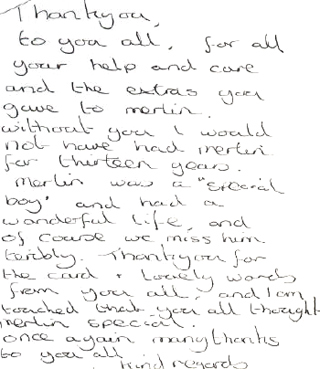 Thankyou,
to you all, for all
your help and care
and the extras you
gave to merlin.
without you I would
not have had merlin
for thirteen years.
Merlin was a "special
boy" and had a
wonderful life, and
of course we miss him
terribly. Thankyou for
the card + lovely words
from you all, and I am
touched that you all thought
merlin special.
once again many thanks
to you all.
kind regards